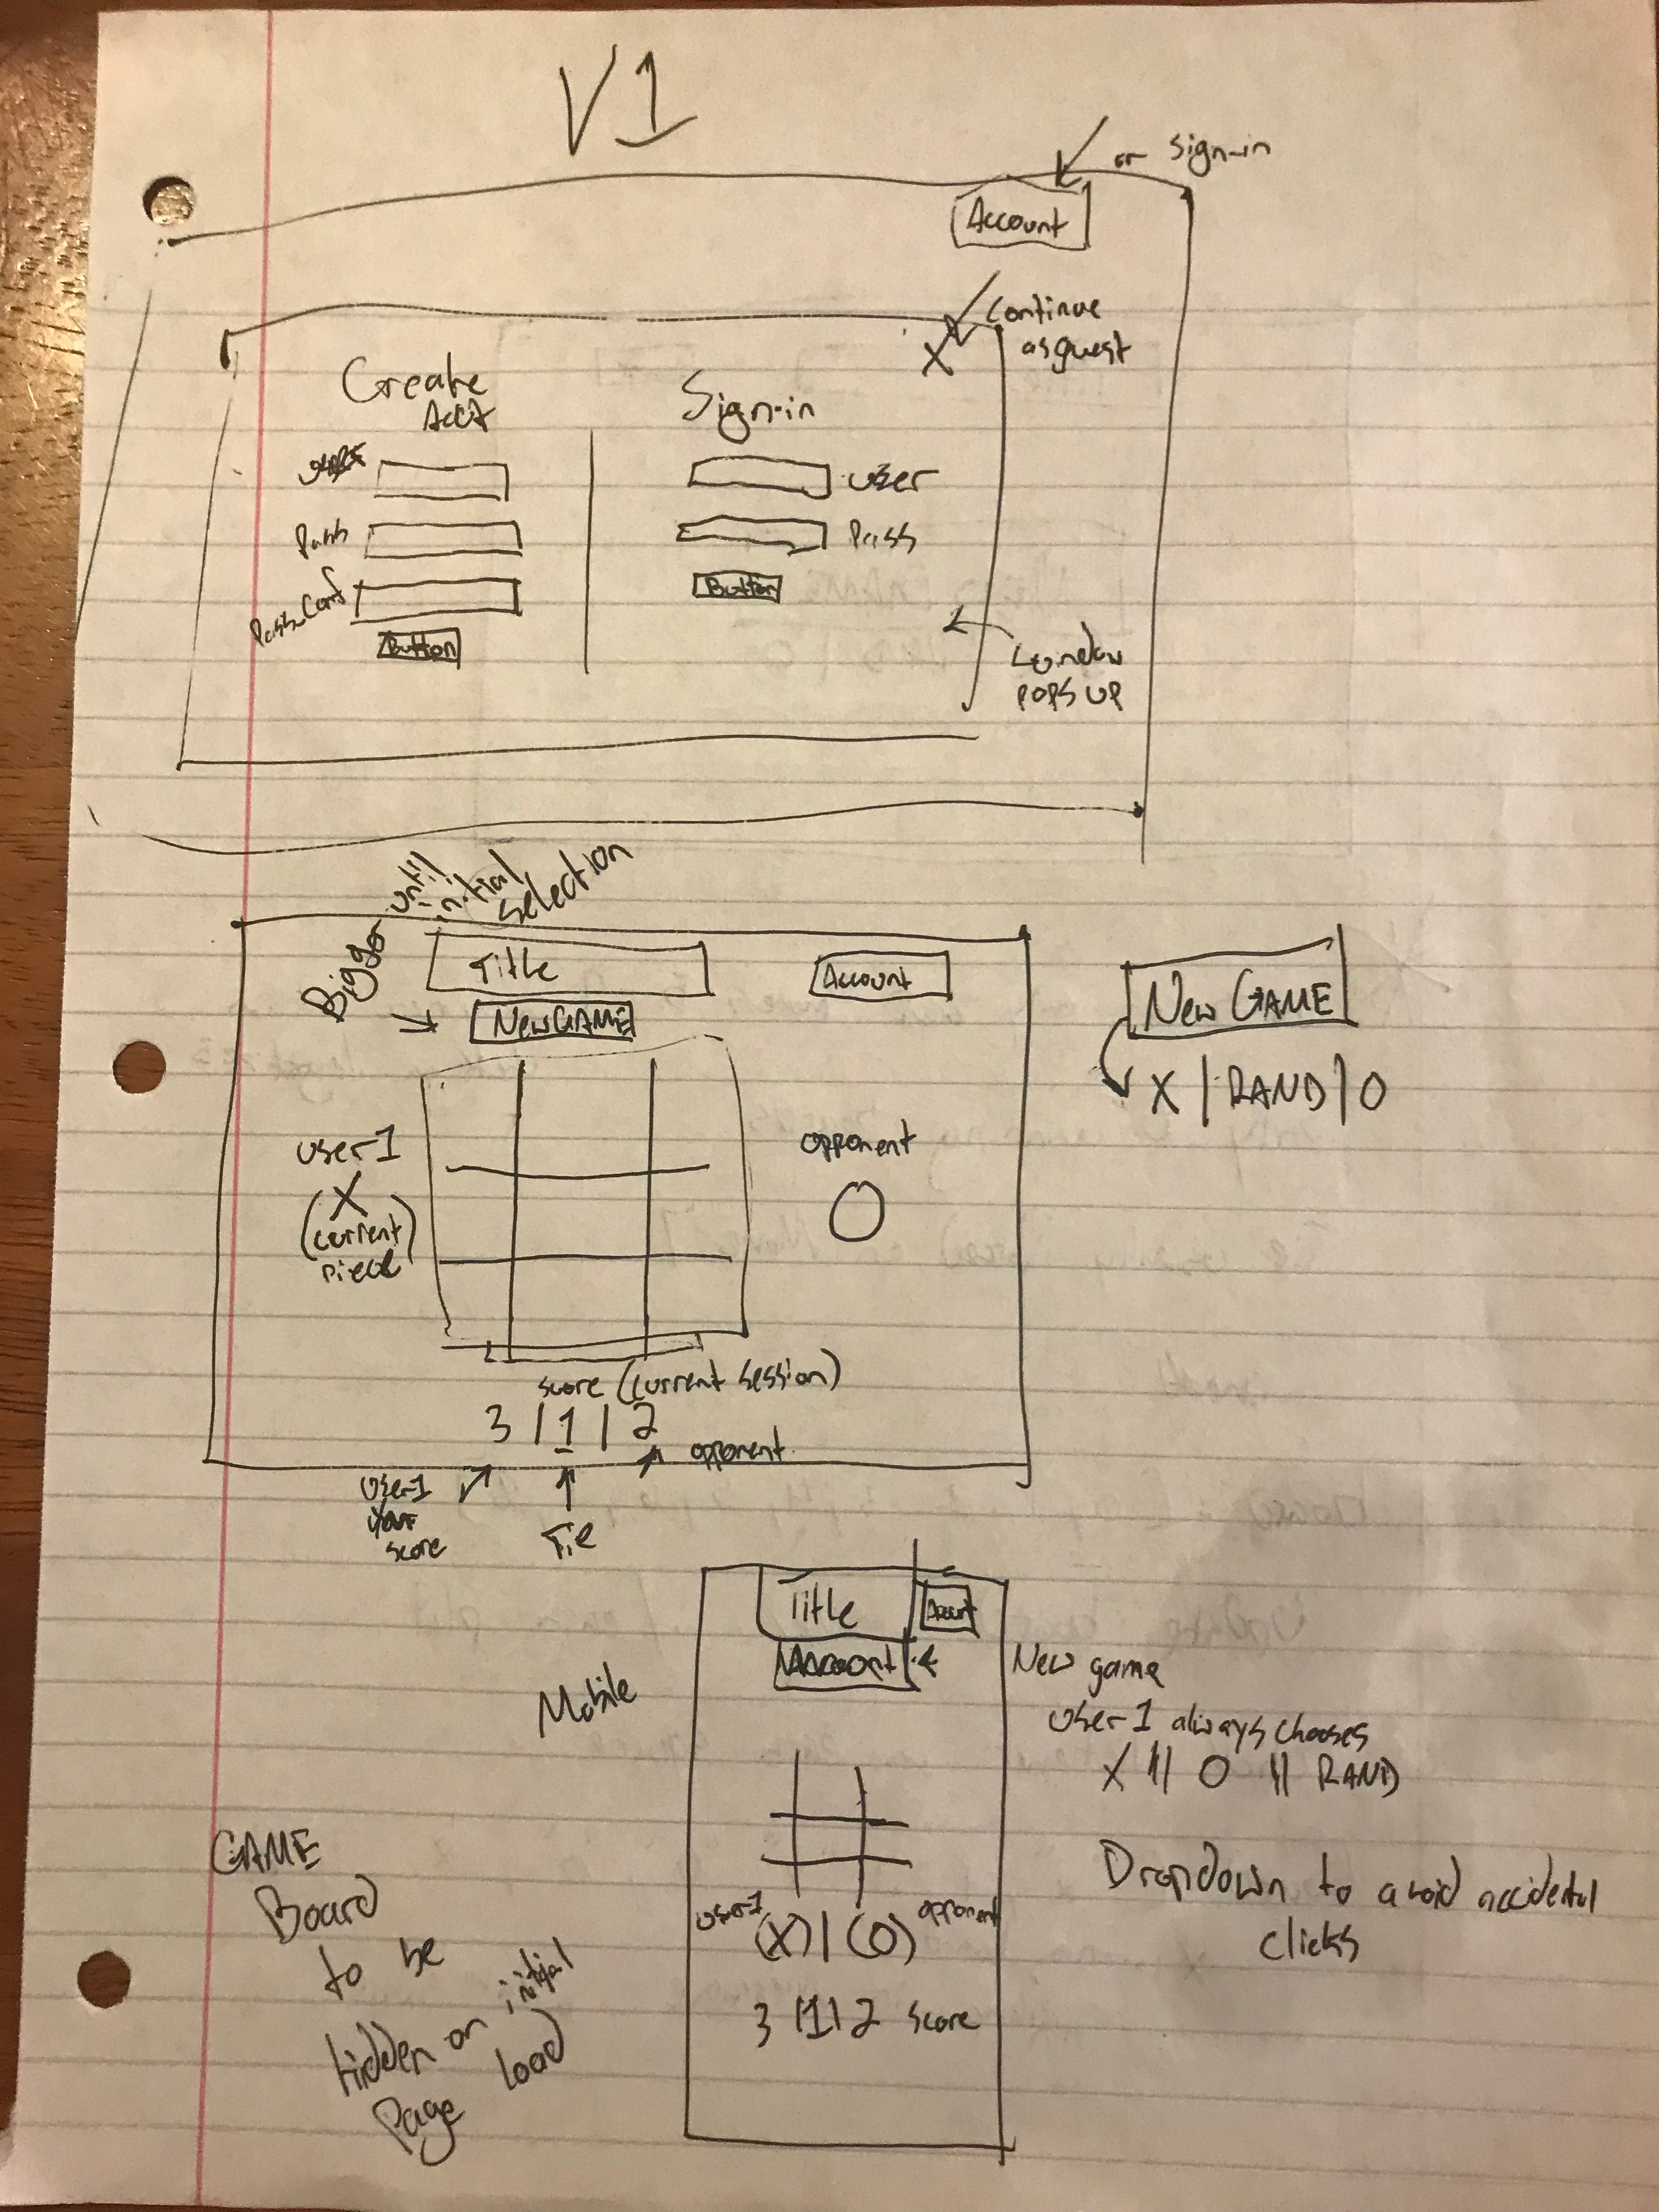 V1
or sign-in
Account
Continue
as guest
X
Create
Acct
Sign-in
user
Pass
Pass
Pass Conf
Button
Button
window
POPS UP
Bigger until
initial
selection
Title
Account
New GAME
New GAME
X | RAND | O
user 1
X
(current)
piece
opponent
O
score (current session)
3 | 1 | 2
opponent
User 1
your
score
Tie
Title
Mobile
New game
user 1 always chooses
X || O || RAND
Dropdown to avoid accidental
clicks
user 1
(X) | (O)
opponent
3 | 1 | 2 score
GAME
Board
to be
hidden on initial
Page load